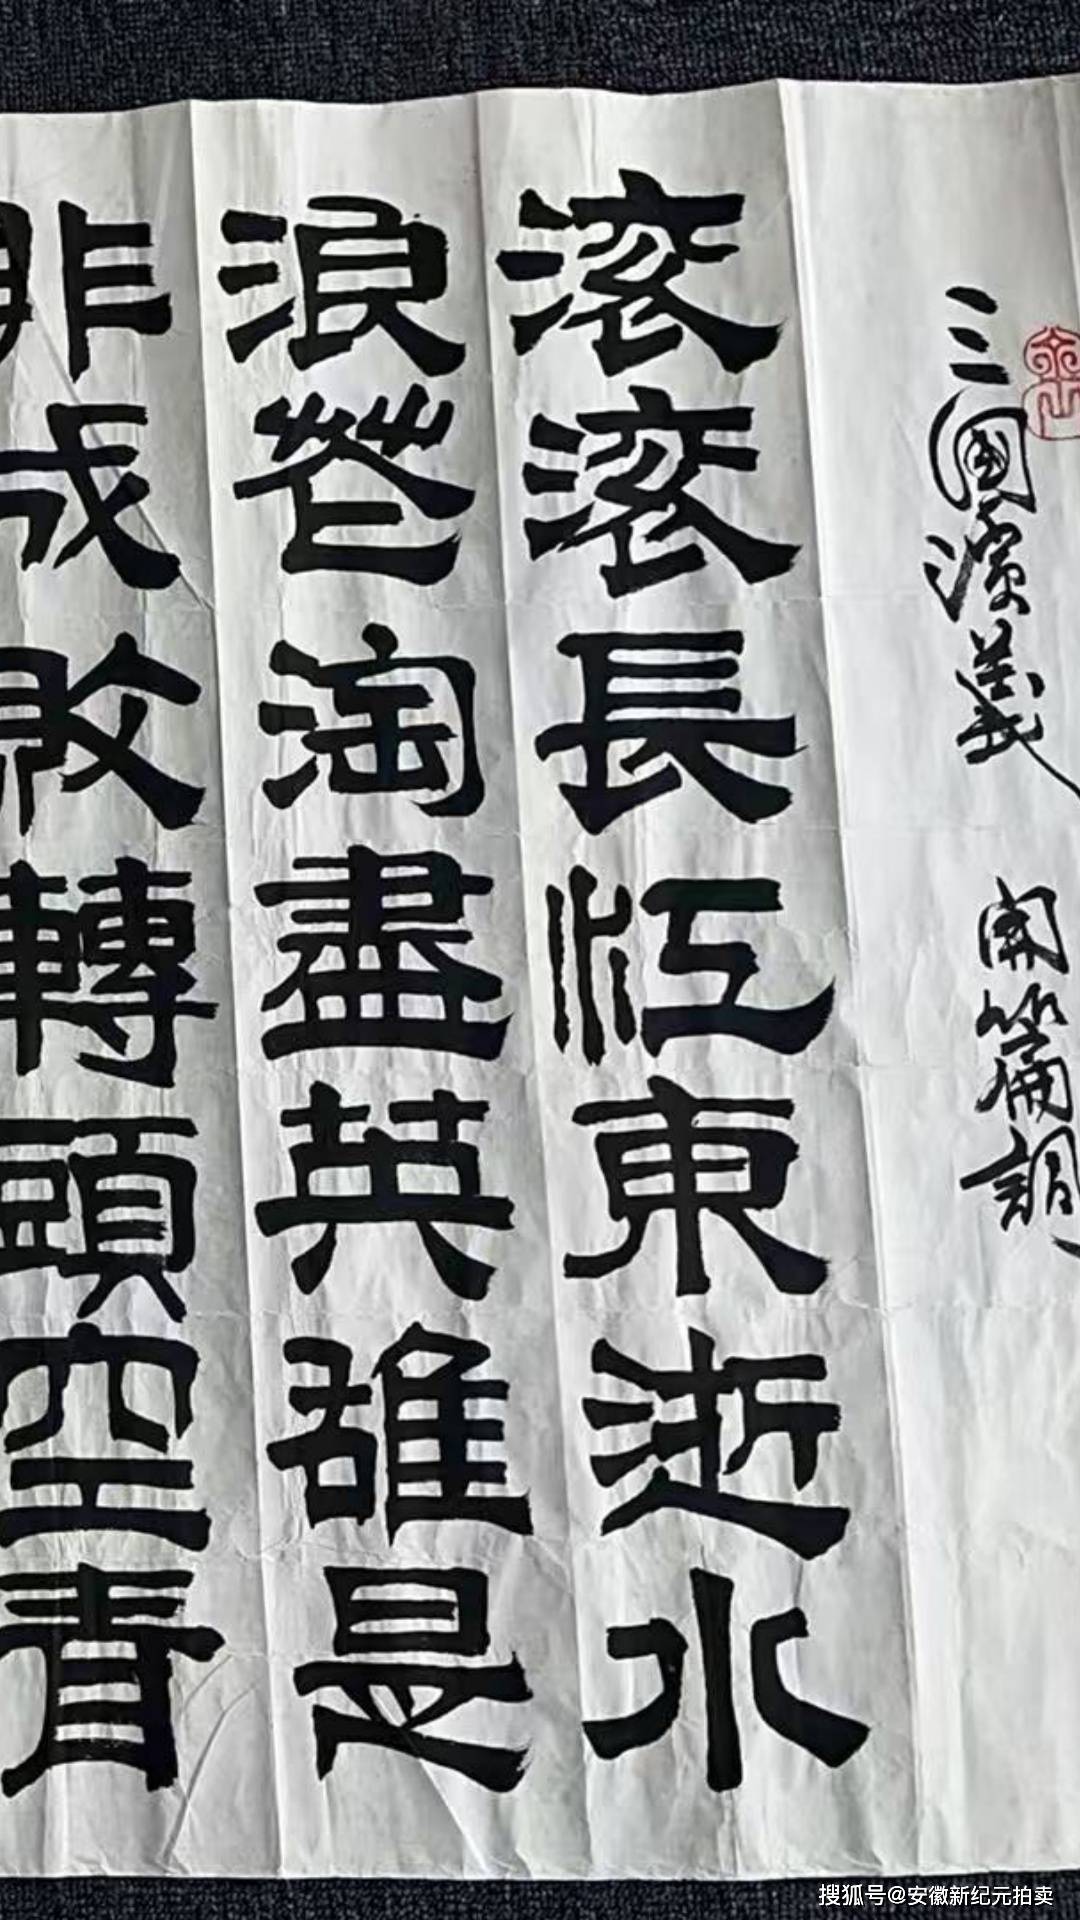 三國演義 開篇詞
滚滚長江東逝水
浪花淘盡英雄是
非成敗轉頭空青
搜狐号@安徽新纪元拍卖